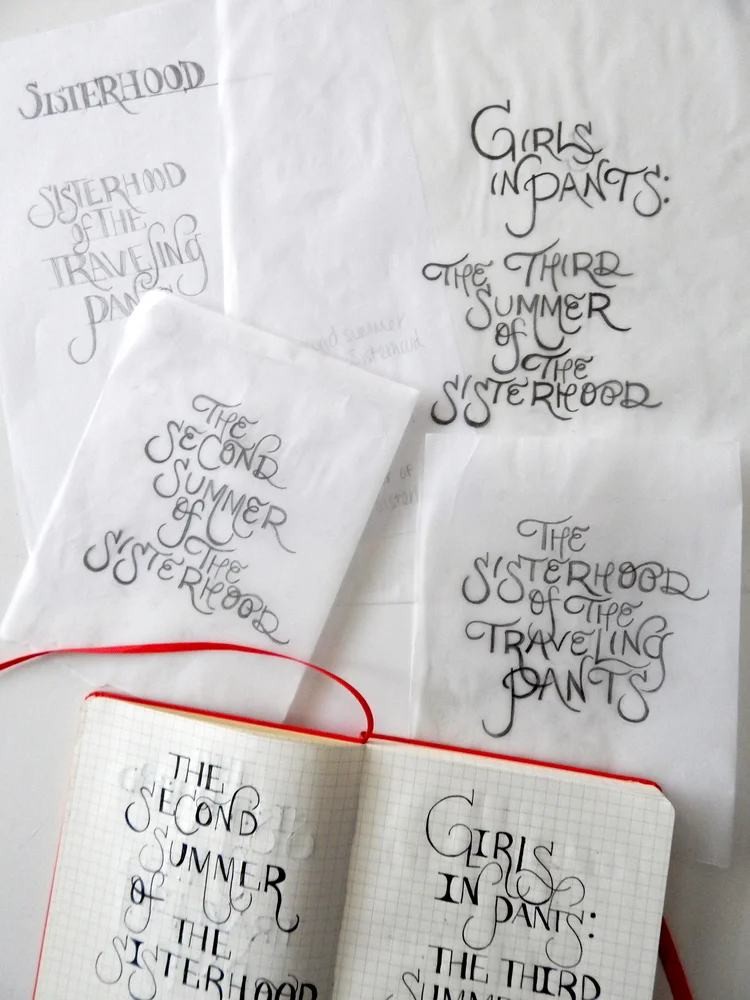 SISTERHOOD
SISTERHOOD
of THE
TRAVELING
PANTS
GIRLS
IN PANTS:
THE THIRD
SUMMER
of
THE
SISTERHOOD
summer
Sisterhood
of
THE
SECOND
SUMMER
of
THE
SISTERHOOD
THE
SISTERHOOD
of THE
TRAVELING
PANTS
THE
SECOND
SUMMER
of
THE
SISTERHOOD
GIRLS
IN PANTS:
THE THIRD
SUMMER